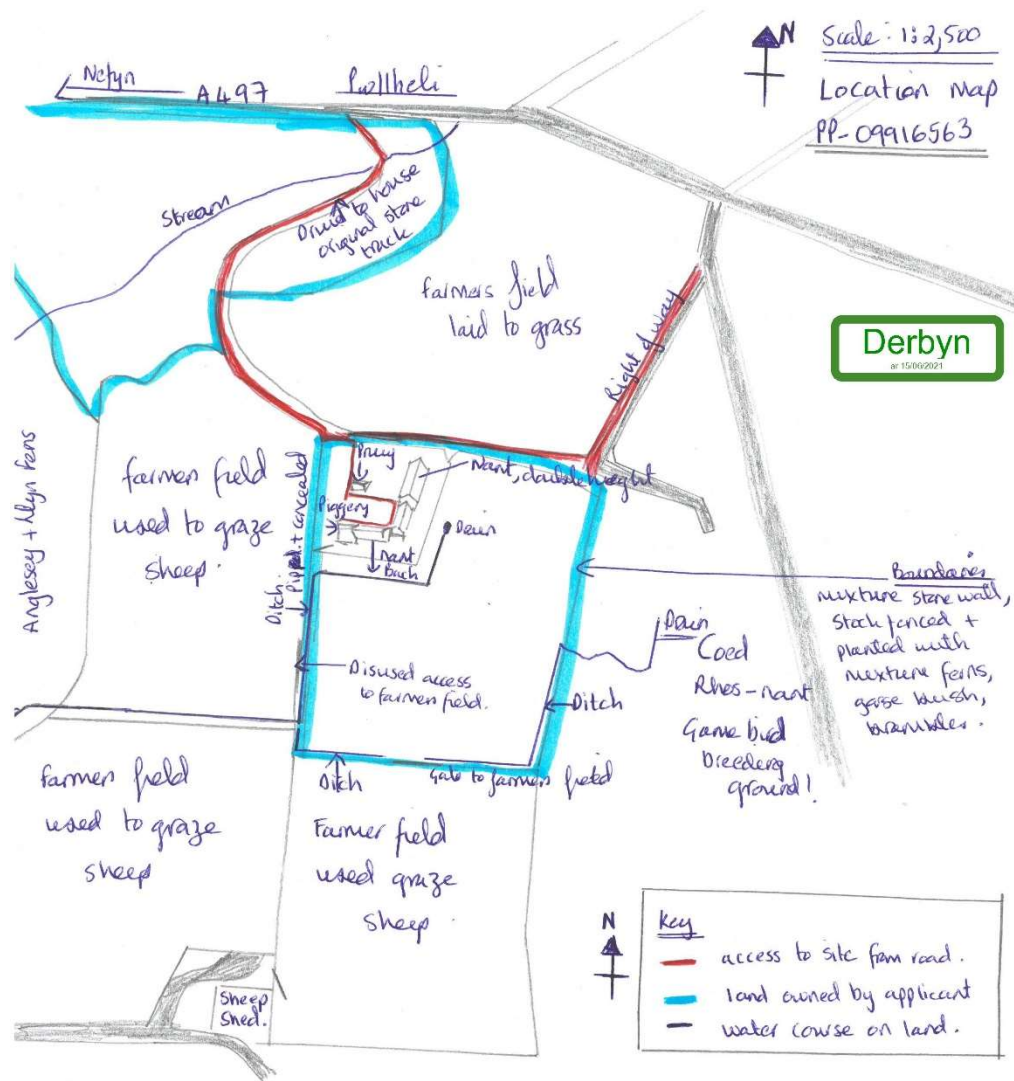 N
Scale: 1:2,500
Location Map
PP-09916563
Nefyn
A497
Pwllheli
Stream
Drive to house
original stone
track
farmers field
laid to grass
Right of way
Derbyn
ar 15/06/2021
Anglesey + Llyn fens
farmer field
used to graze
sheep.
Ditch Piped + concealed
Privy
Piggery
Nant, double height
Drain
nant
bach
Disused access
to farmer field.
Boundaries
mixture stone wall,
stock fenced +
planted with
mixture ferns,
gorse bush,
brambles.
Drain
Coed
Rhos-nant
Game bird
breeding
ground!
Ditch
Ditch
Gate to farmers field
farmer field
used to graze
sheep
Farmer field
used graze
sheep
Sheep
Shed.
N
Key
access to site from road.
land owned by applicant
water course on land.